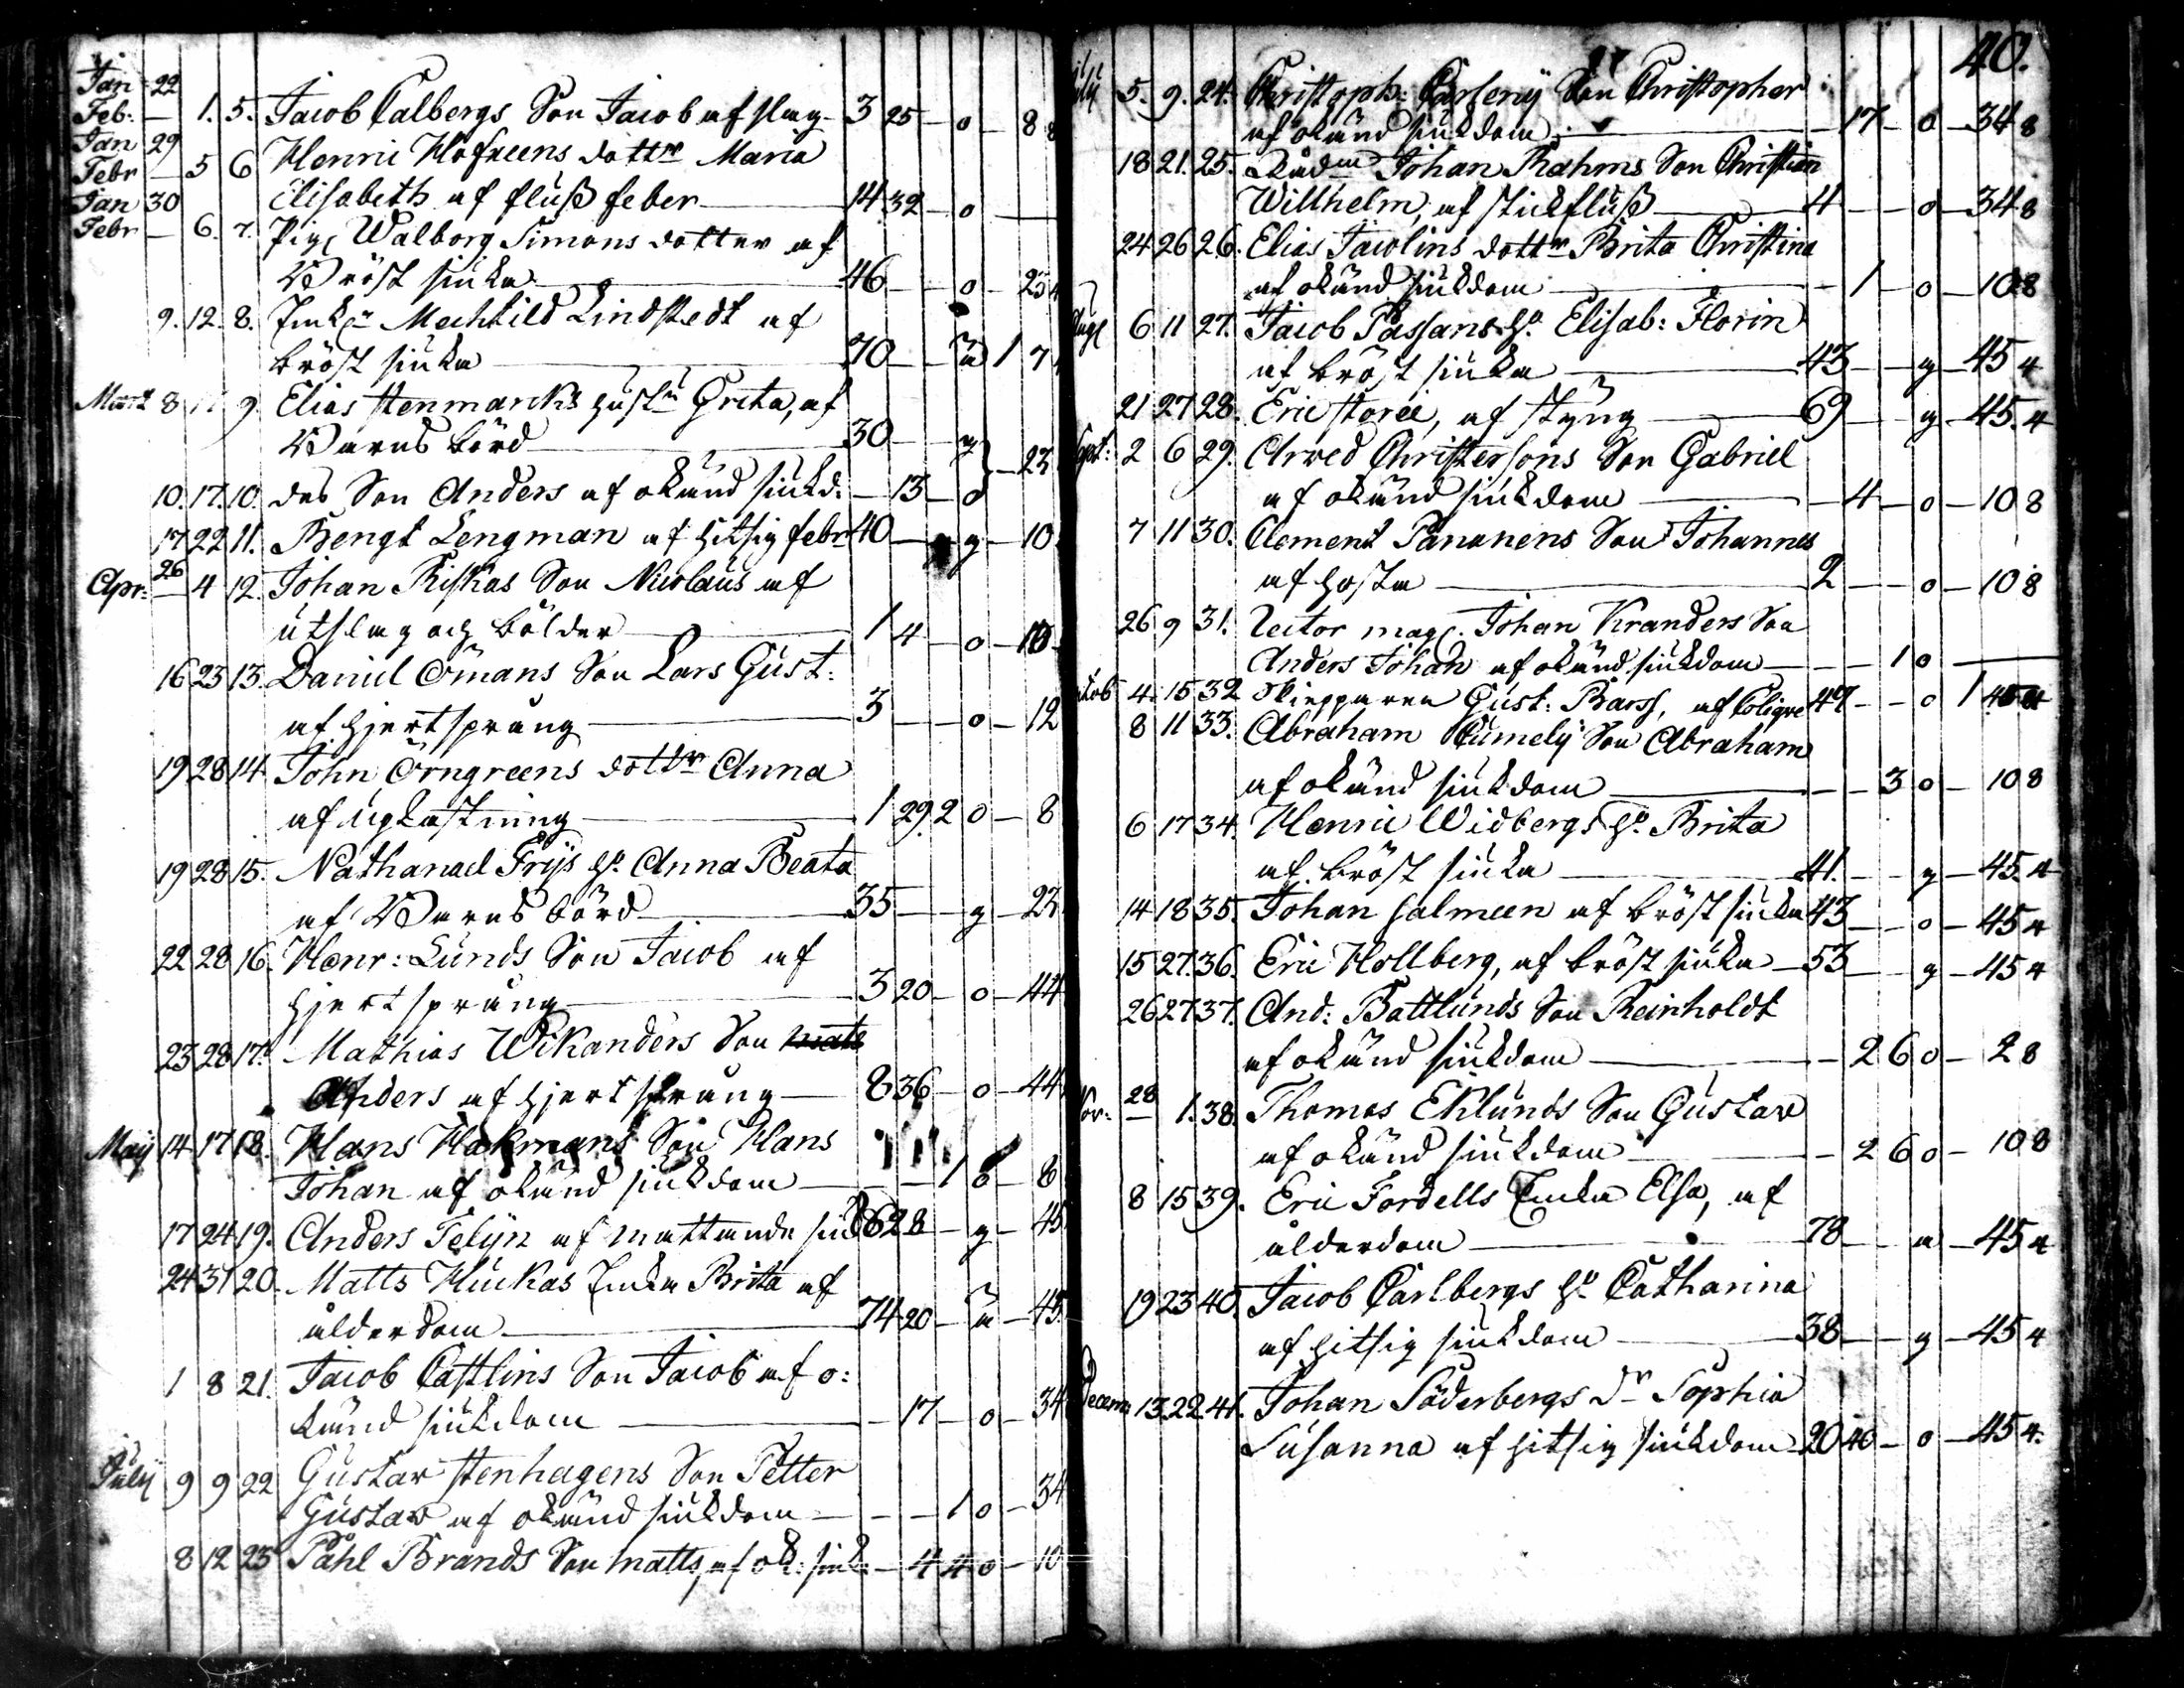 Jan 22
Feb: — 1. 5. Jacob Calbergs Son Jacob af slag — 3 25 — o — 8 8
Jan 29
Febr — 5 6 Henric Hofreens dottr Maria
Elisabeth af fluss feber — 14 32 — o —
Jan 30
Febr — 6. 7. Pig. Walborg Simons dotter af
Bröst siuka — 46 — o — 23 4
9. 12. 8. Enk: Mechtild Lindstedt af
bröst siuka — 70 — ä 1 7
Mart 8 17 9. Elias Stenmarcks hustru Greta, af
Barns börd — 30 — g
23
10. 17. 10. des Son Anders af okänd siukd: — 13 — o
17 22 11. Bengt Lengman af hitsig febr 40 — g — 10
26
Apr: — 4 12. Johan Riskas Son Nicolaus af
utslag och bölder — 1 4 — o — 10
16 23 13. Daniel Ömans Son Lars Gust:
af hjertsprång — 3 — o — 12
19 28 14. John Örngreens dottr Anna
af upkastning — 1 29 2 o — 8
19 28 15. Nathanael Frijs h: Anna Beata
af Barns börd — 35 — g — 23
22 28 16. Henr: Lunds Son Jacob af
hjertsprång — 3 20 — o — 44
23 28 17. Mathias Wikanders Son Matts
Anders af hjertsprång — 8 36 — o — 44
Maij 14 17 18. Hans Hakmans Son Hans
Johan af okänd siukdom — 1 o — 8
17 24 19. Anders Telijn af mattande siukd 62 8 — g — 45
24 31 20. Matts Huckas Enka Brita af
ålderdom — 74 20 — ä — 45
1 8 21. Jacob Castlins Son Jacob af o:
känd siukdom — 17 — o — 34
July 9 9 22 Gustav Stenhagens Son Petter
Gustav af okänd siukdom — 1 o — 34
8 12 23 Påhl Brands Son Matts, af ok: siuk: — 4 4 o — 10
40.
July 5. 9. 24. Christoph: Carleny Son Christopher
af okänd siukdom — 17 — o — 34 8
18 21. 25. Rådm Johan Rahms Son Christian
Willhelm, af stickfluss — 4 — o — 34 8
24 26 26. Elias Jacolins dottr Brita Christina
af okänd siukdom — 1 — o — 10 8
Aug 6 11 27. Jacob Passans h: Elisab: Florin
af bröst siuka — 43 — g — 45 4
21 27 28. Eric Storee, af styng — 69 — g — 45. 4
Sept: 2 6 29. Arved Christersons Son Gabriel
af okänd siukdom — 4 — o — 10 8
7 11 30. Clement Pananens Son Johannes
af hosta — 2 — o — 10 8
26 9 31. Rector mag. Johan Kranders Son
Anders Johan af okänd siukdom — 1 o —
Octob 4. 15 32 Skiepparen Gust: Barss, af Colique 47 — o 1
8 11 33. Abraham Cumelij Son Abraham
af okänd siukdom — 3 o — 10 8
6 17 34. Henric Widbergs h: Brita
af bröst siuka — 41. — g — 45. 4
14 18 35. Johan Salmeen af bröst siuka 43 — o — 45 4
15 27. 36. Eric Hollberg, af bröst siuka — 53 — g — 45 4
26 27 37. And: Battlunds Son Reinholdt
af okänd siukdom — 2 6 o — 2 8
28
Nov: — 1. 38. Thomas Eklunds Son Gustav
af okänd siukdom — 2 6 o — 10 8
8 15 39. Eric Fordells Enka Elsa, af
ålderdom — 78 — a — 45 4
19 23 40. Jacob Carlbergs h: Catharina
af hitsig siukdom — 38 — g — 45 4
Decem 13. 22. 41. Johan Söderbergs dr Sophia
Susanna af hitsig siukdom 20 40 — o — 45 4.